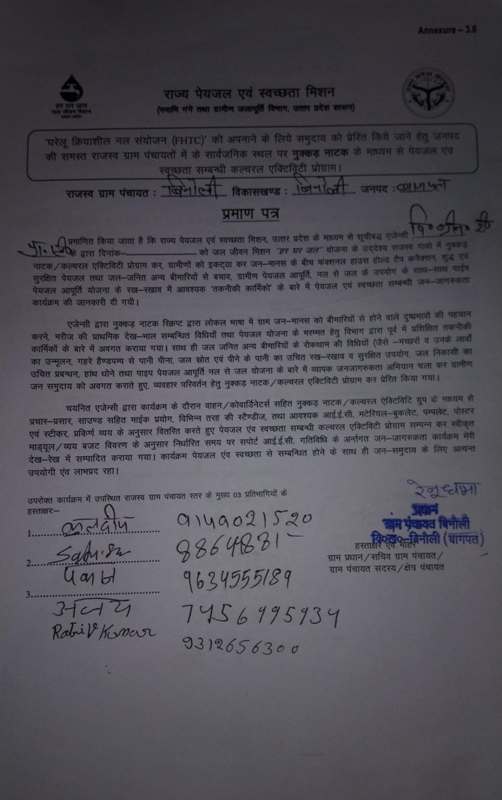 Annexure – 3.6
राज्य पेयजल एवं स्वच्छता मिशन
(नमामि गंगे तथा ग्रामीण जलापूर्ति विभाग, उत्तर प्रदेश शासन)
'घरेलू क्रियाशील नल संयोजन (FHTC)' को अपनाने के लिये समुदाय को प्रेरित किये जाने हेतु जनपद
की समस्त राजस्व ग्राम पंचायतों में के सार्वजनिक स्थल पर नुक्कड़ नाटक के माध्यम से पेयजल एवं
स्वच्छता सम्बन्धी कल्चरल एक्टिविटी प्रोग्राम।
राजस्व ग्राम पंचायत : बिनौली विकासखण्ड : बिनौली जनपद : बागपत
प्रमाण पत्र
प्रमाणित किया जाता है कि राज्य पेयजल एवं स्वच्छता मिशन, उत्तर प्रदेश के माध्यम से सूचीबद्ध एजेन्सी
के द्वारा दिनांक को जल जीवन मिशन 'हर घर जल' योजना के उद्देश्य राजस्व गांवों में नुक्कड़
नाटक/कल्चरल एक्टिविटी प्रोग्राम कर, ग्रामीणों को इकट्ठा कर जन-मानस के बीच फंक्शनल हाउस होल्ड टैप कनेक्शन, शुद्ध एवं
सुरक्षित पेयजल तथा जल-जनित अन्य बीमारियों से बचाव, ग्रामीण पेयजल आपूर्ति, नल से जल के उपयोग के साथ-साथ पाईप
पेयजल आपूर्ति योजना के रख-रखाव में आवश्यक 'तकनीकी कार्मिकों' के बारे में पेयजल एवं स्वच्छता सम्बन्धी जन-जागरूकता
कार्यक्रम की जानकारी दी गयी।
एजेन्सी द्वारा नुक्कड़ नाटक स्क्रिप्ट द्वारा लोकल भाषा में ग्राम जन-मानस को बीमारियों से होने वाले दुष्प्रभावों की पहचान
करने, मरीज की प्राथमिक देख-भाल सम्बन्धित विधियाँ तथा पेयजल योजना के मरम्मत हेतु विभाग द्वारा पूर्व में प्रशिक्षित तकनीकी
कार्मिकों के बारे में अवगत कराया गया। साथ ही जल जनित अन्य बीमारियों के रोकथाम की विधियों (जैसे -मच्छरों व उनके लार्वा
का उन्मूलन, गहरे हैण्डपम्प से पानी पीना, जल स्रोत एवं पीने के पानी का उचित रख-रखाव व सुरक्षित उपयोग, जल निकासी का
उचित प्रबन्धन, हांथ धोने तथा पाइप पेयजल आपूर्ति नल से जल योजना के बारे में व्यापक जनजागरूकता अभियान चला कर ग्रामीण
जन समुदाय को अवगत कराते हुए, व्यवहार परिवर्तन हेतु नुक्कड़ नाटक/कल्चरल एक्टिविटी प्रोग्राम कर प्रेरित किया गया।
चयनित एजेन्सी द्वारा कार्यक्रम के दौरान वाहन/कोवार्डिनेटर्स सहित नुक्कड़ नाटक/कल्चरल एक्टिविटी ग्रुप के मध्यम से
प्रचार-प्रसार, साउण्ड सहित माईक प्रयोग, विभिन्न तरह की स्टैण्डीज, तथा आवश्यक आई.ई.सी. मटेरियल-बुकलेट, पम्पलेट, पोस्टर
एवं स्टीकर, प्रविर्ण व्यय के अनुसार वितरित करते हुए पेयजल एवं स्वच्छता सम्बन्धी कल्चरल एक्टिविटी प्रोग्राम सम्पन्न कर स्वीकृत
माड्यूल/व्यय बजट विवरण के अनुसार निर्धारित समय पर सपोर्ट आई.ई.सी. गतिविधि के अर्न्तगत जन-जागरूकता कार्यक्रम मेरी
देख-रेख में सम्पादित कराया गया। कार्यक्रम पेयजल एवं स्वच्छता से सम्बन्धित होने के साथ ही जन-समुदाय के लिए अत्यन्त
उपयोगी एंव लाभप्रद रहा।
उपरोक्त कार्यक्रम में उपस्थित राजस्व ग्राम पंचायत स्तर के मुख्य 03 प्रतिभागियों के
हस्ताक्षर:-
रेनू धामा
प्रधान
ग्राम पंचायत बिनौली
वि०ख०-बिनौली (बागपत)
हस्ताक्षर एवं मोहर
ग्राम प्रधान/सचिव ग्राम पंचायत/
ग्राम पंचायत सदस्य/क्षेत्र पंचायत
1. कुलदीप 9149021520
2. 8864881-
पंकज 9634555189
3.
अजय 7456995934
Kumar
9312656300